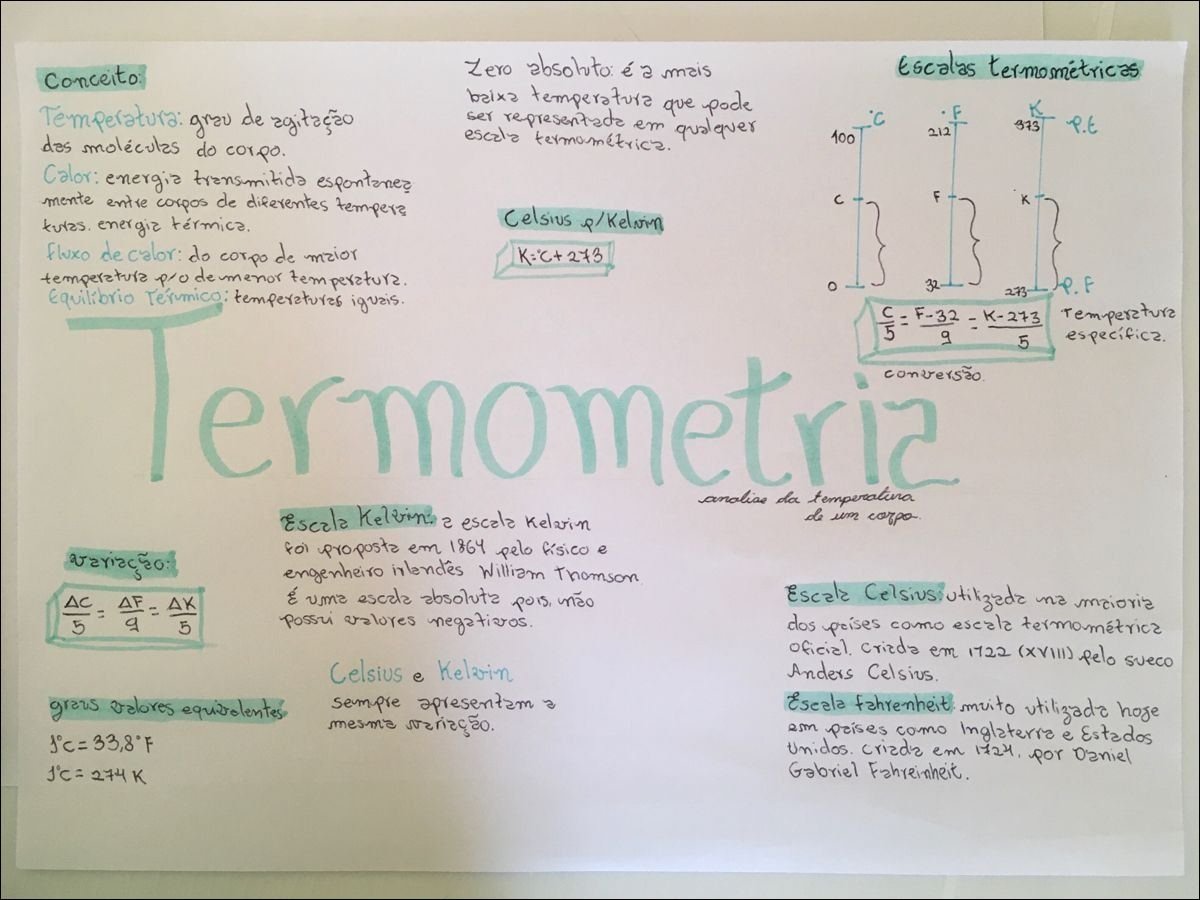 Conceito:
Temperatura: grau de agitação
das moléculas do corpo.
Calor: energia transmitida espontanea
mente entre corpos de diferentes tempera
turas. energia térmica.
Fluxo de calor: do corpo de maior
temperatura p/o de menor temperatura.
Equilíbrio Térmico: temperaturas iguais.
Zero absoluto: é a mais
baixa temperatura que pode
ser representada em qualquer
escala termométrica.
Celsius p/Kelvin
K=°C+273
Escalas termométricas
°C °F K
100 212 373 P.E
C F K
0 32 273 P.F
C/5 = F-32/9 = K-273/5
Temperatura
específica.
conversão.
Termometria
analise da temperatura
de um corpo.
Variação:
ΔC/5 = ΔF/9 = ΔK/5
graus valores equivalentes
1°C = 33,8°F
1°C = 274 K
Escala Kelvin: a escala Kelvin
foi proposta em 1864 pelo físico e
engenheiro irlandês William Thomson.
É uma escala absoluta pois, não
possui valores negativos.
Celsius e Kelvin
sempre apresentam a
mesma variação.
Escala Celsius: utilizada na maioria
dos países como escala termométrica
oficial. Criada em 1722 (XVIII) pelo sueco
Anders Celsius.
Escala Fahrenheit: muito utilizada hoge
em países como Inglaterra e Estados
Unidos. Criada em 1724, por Daniel
Gabriel Fahreinheit.